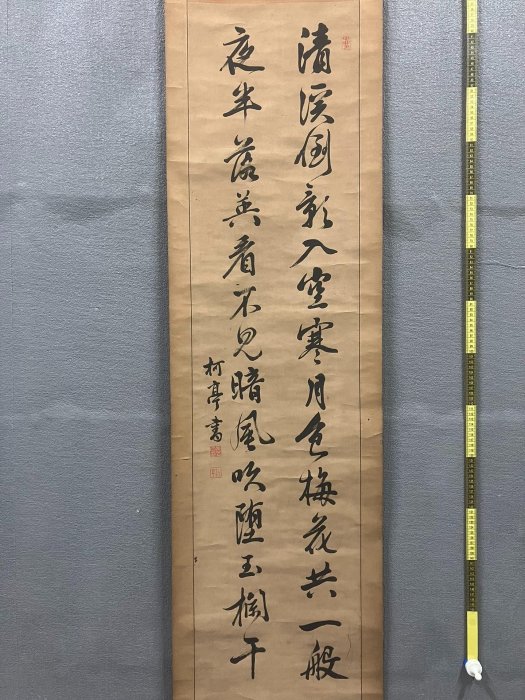 清溪倒影入空寒月色梅花共一般
夜半落英看不見暗風吹墮玉欄干
柯亭書